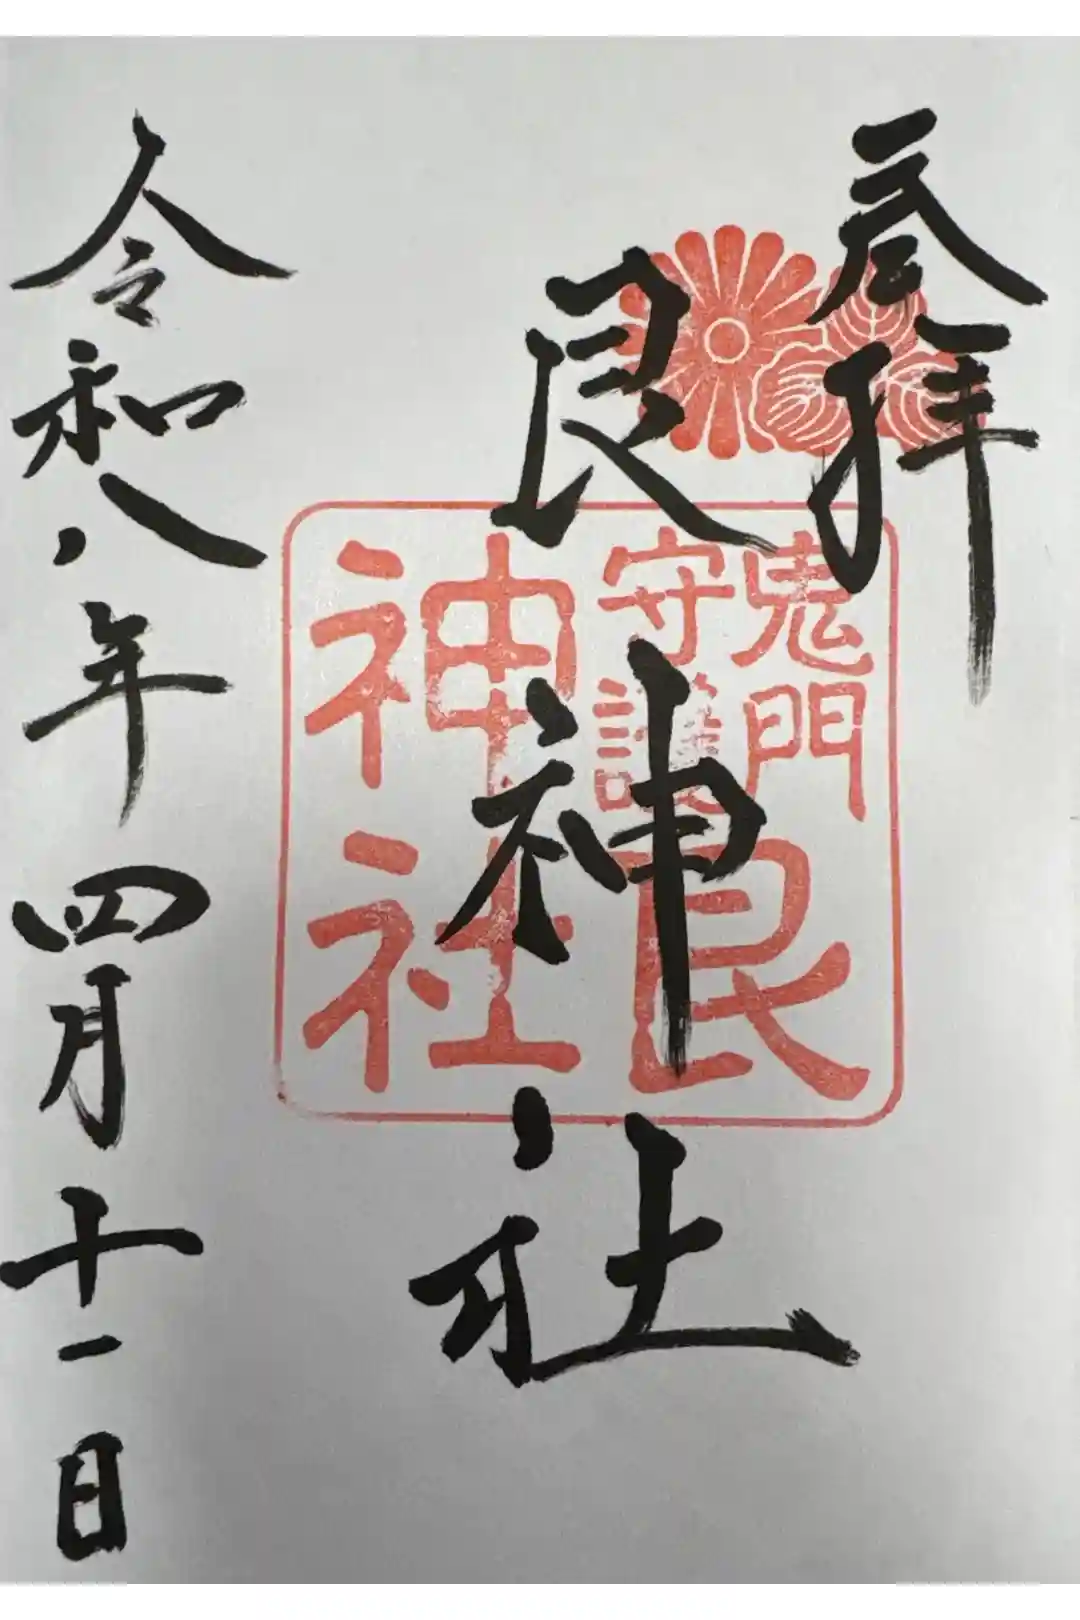 参拝
艮神社
令和八年四月十一日
鬼門
守護
艮
神社